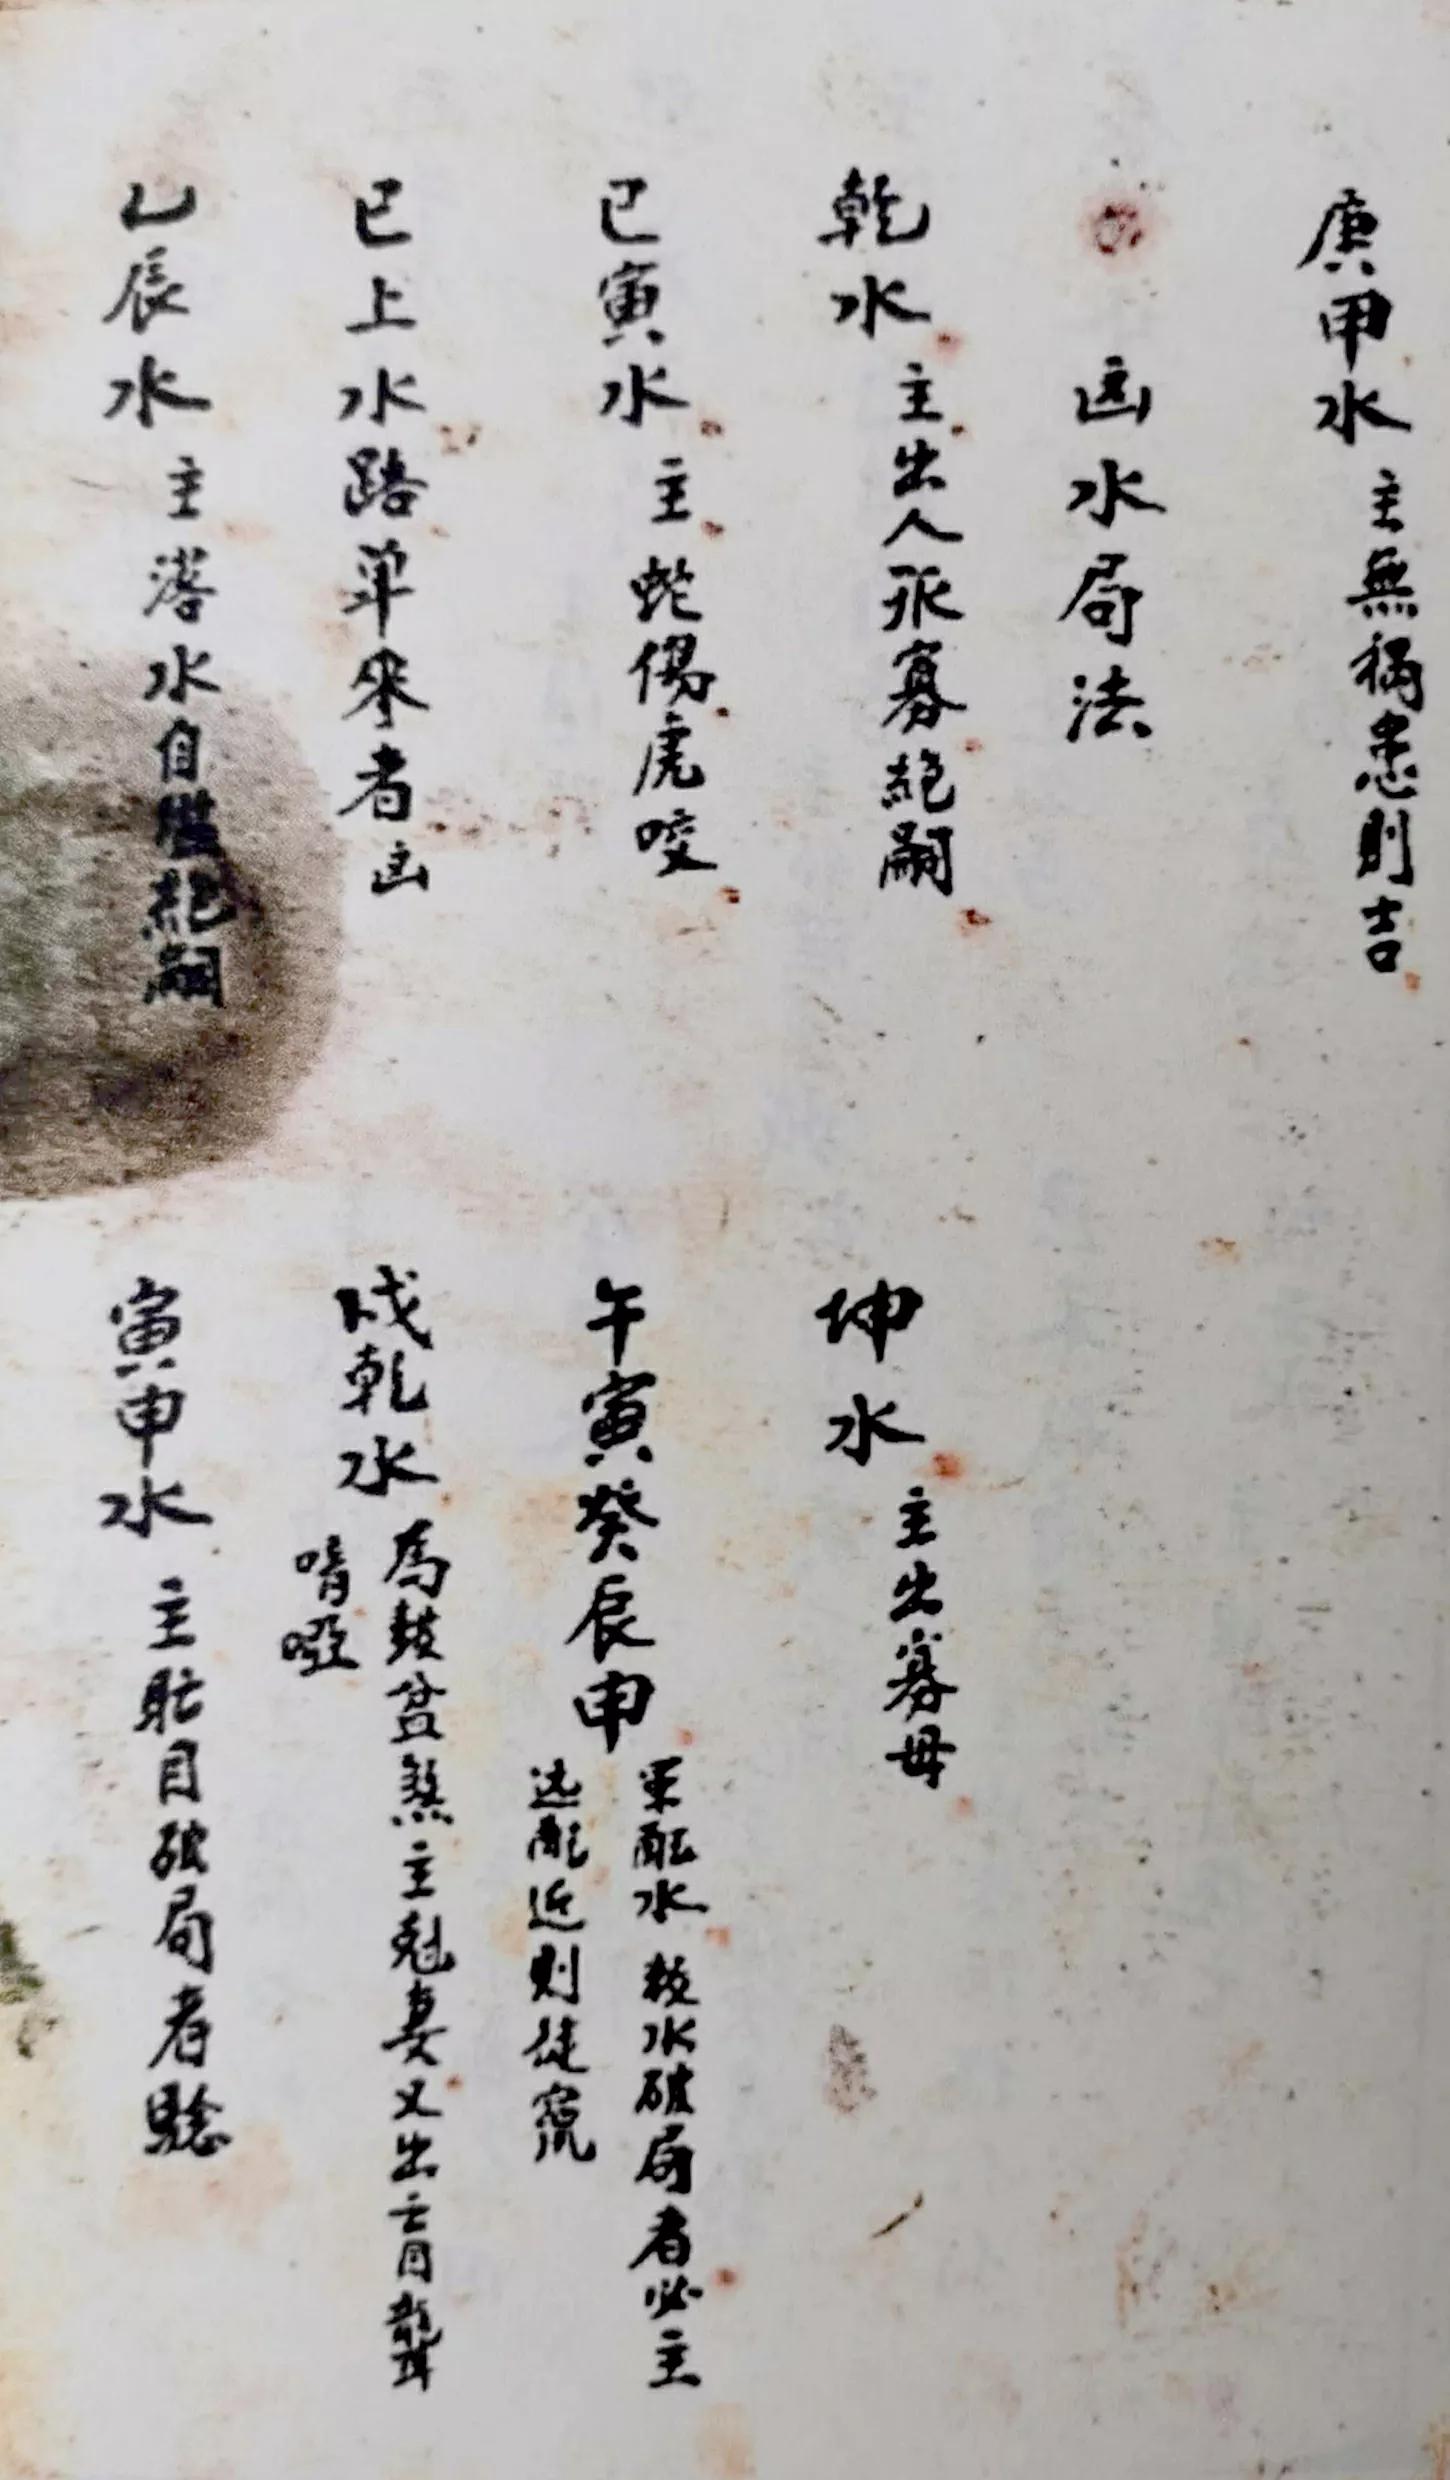 庚甲水 主無禍患則吉
凶水局法
乾水 主出人孤寡絕嗣
坤水 主出寡母
巳寅水 主蛇傷虎咬
午寅癸辰申
軍配水 水破局者必主
逃配近則徒
巳上水路單來者凶
戌乾水 為鼓盆煞主尅妻又出盲聾
喑啞
乙辰水 主落水自縊絕嗣
寅申水 主眍目破局者驗